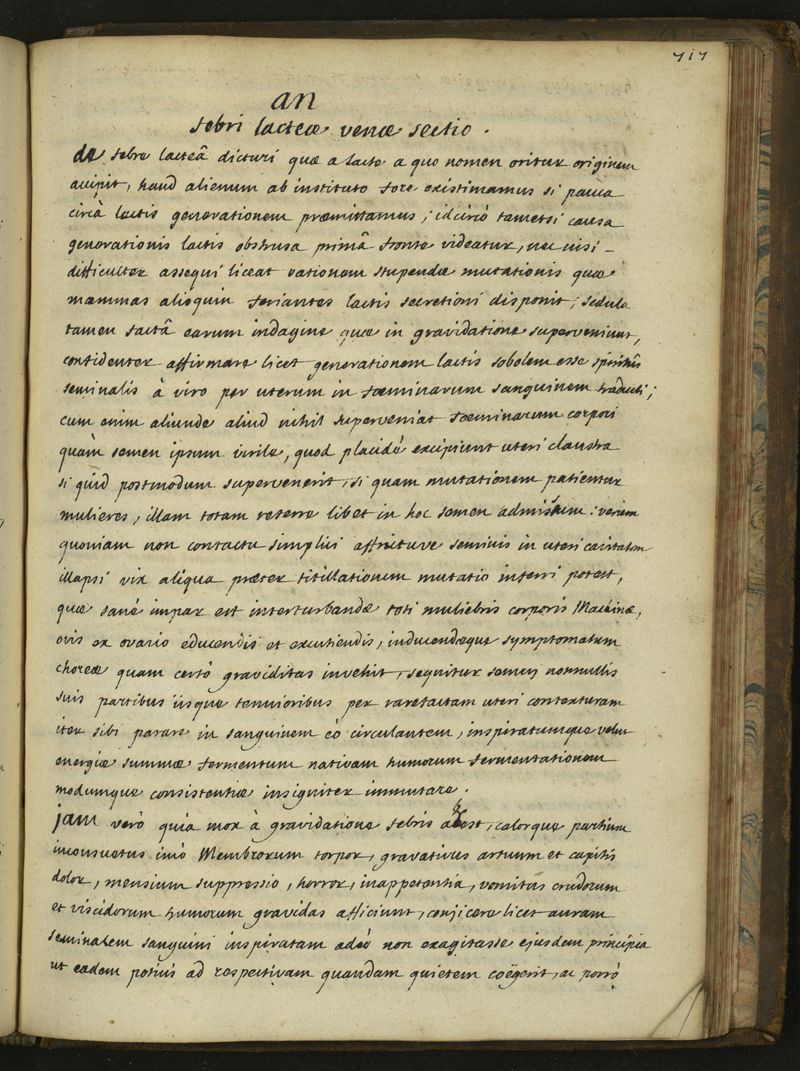 717
an
febri lacteæ venæ sectio .
de febre lacteâ dicturi quæ a lacte a quo nomen oritur originem
accipit, haud alienum ab instituto fore existimamus si pauca
circà lactis generationem præmittamus ; idcircò tametsi causa
generationis lactis obstrusa primâ fronte videatur, nec nisi –
difficulter assequi liceat rationem stupendæ mutationis quæ
mammas alioquin feriantes lactis secretioni disponit ; sedula
tamen factâ earum indagine quæ in gravidatione superveniunt,
confidenter affirmare licet generationem lactis sobolem esse spiritûs
seminalis à viro per uterum in fœminarum sanguinem traducti ;
cum enim aliunde aliud nihil superveniat fœminarum corpori
quàm semen ipsum virile, quod placidè excipiunt uteri claustra
si quid postmodum supervenerit, si quam mutationem patientur
mulieres, illam totam referre libet in hoc semen admissum : verùm
quoniam non contactu simplici affrictuve seminis in uteri cavitatem
illapsi vix aliqua præter titillationem mutatio inferri potest,
quæ sanè impar est interturbandæ toti muliebris corporis Machinæ,
ovis ex ovario educendis et excutiendis, inducendæque symptomatum
choreæ quam certò graviditas invehit, sequitur semen nonnullis
suis partibus iisque tenuioribus per rarefactam uteri contexturam
iter sibi parare in sanguinem eò circulantem, inspiratumque velut
energiæ summæ fermentum nativam humorum fermentationem
modumque consistentiæ insigniter immutare .
jam verò quia mox à gravidatione febris adest, calorque partium
inconsuetus imò Membrorum torpor, gravativus artuum et capitis
dolor, mensium suppressio, horror, inappetentia, vomitus crudorum
et viscidorum humorum gravidas afficiunt, conjicere licet auram
seminalem sanguini inspiratam adeò non exagitasse ejusdem principia
ut eadem potiùs ad respectivam quandam quietem coëgerit, ac porrò